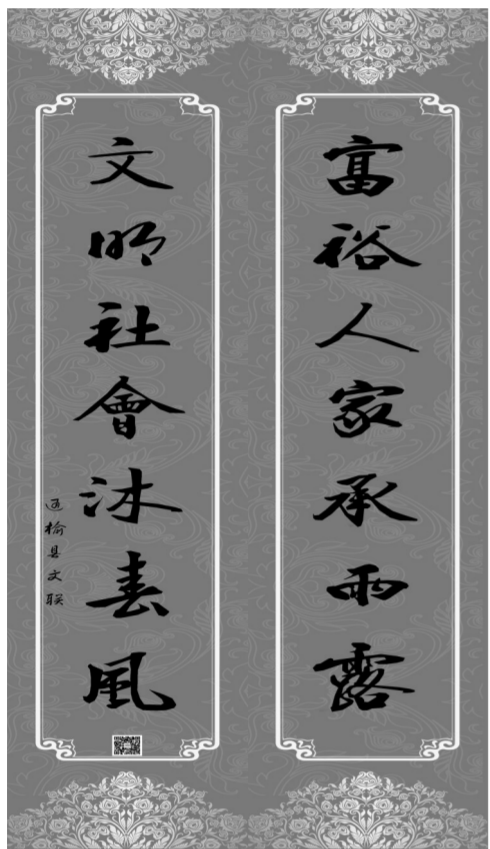 富裕人家承雨露
文明社會沐春風
通榆县文联